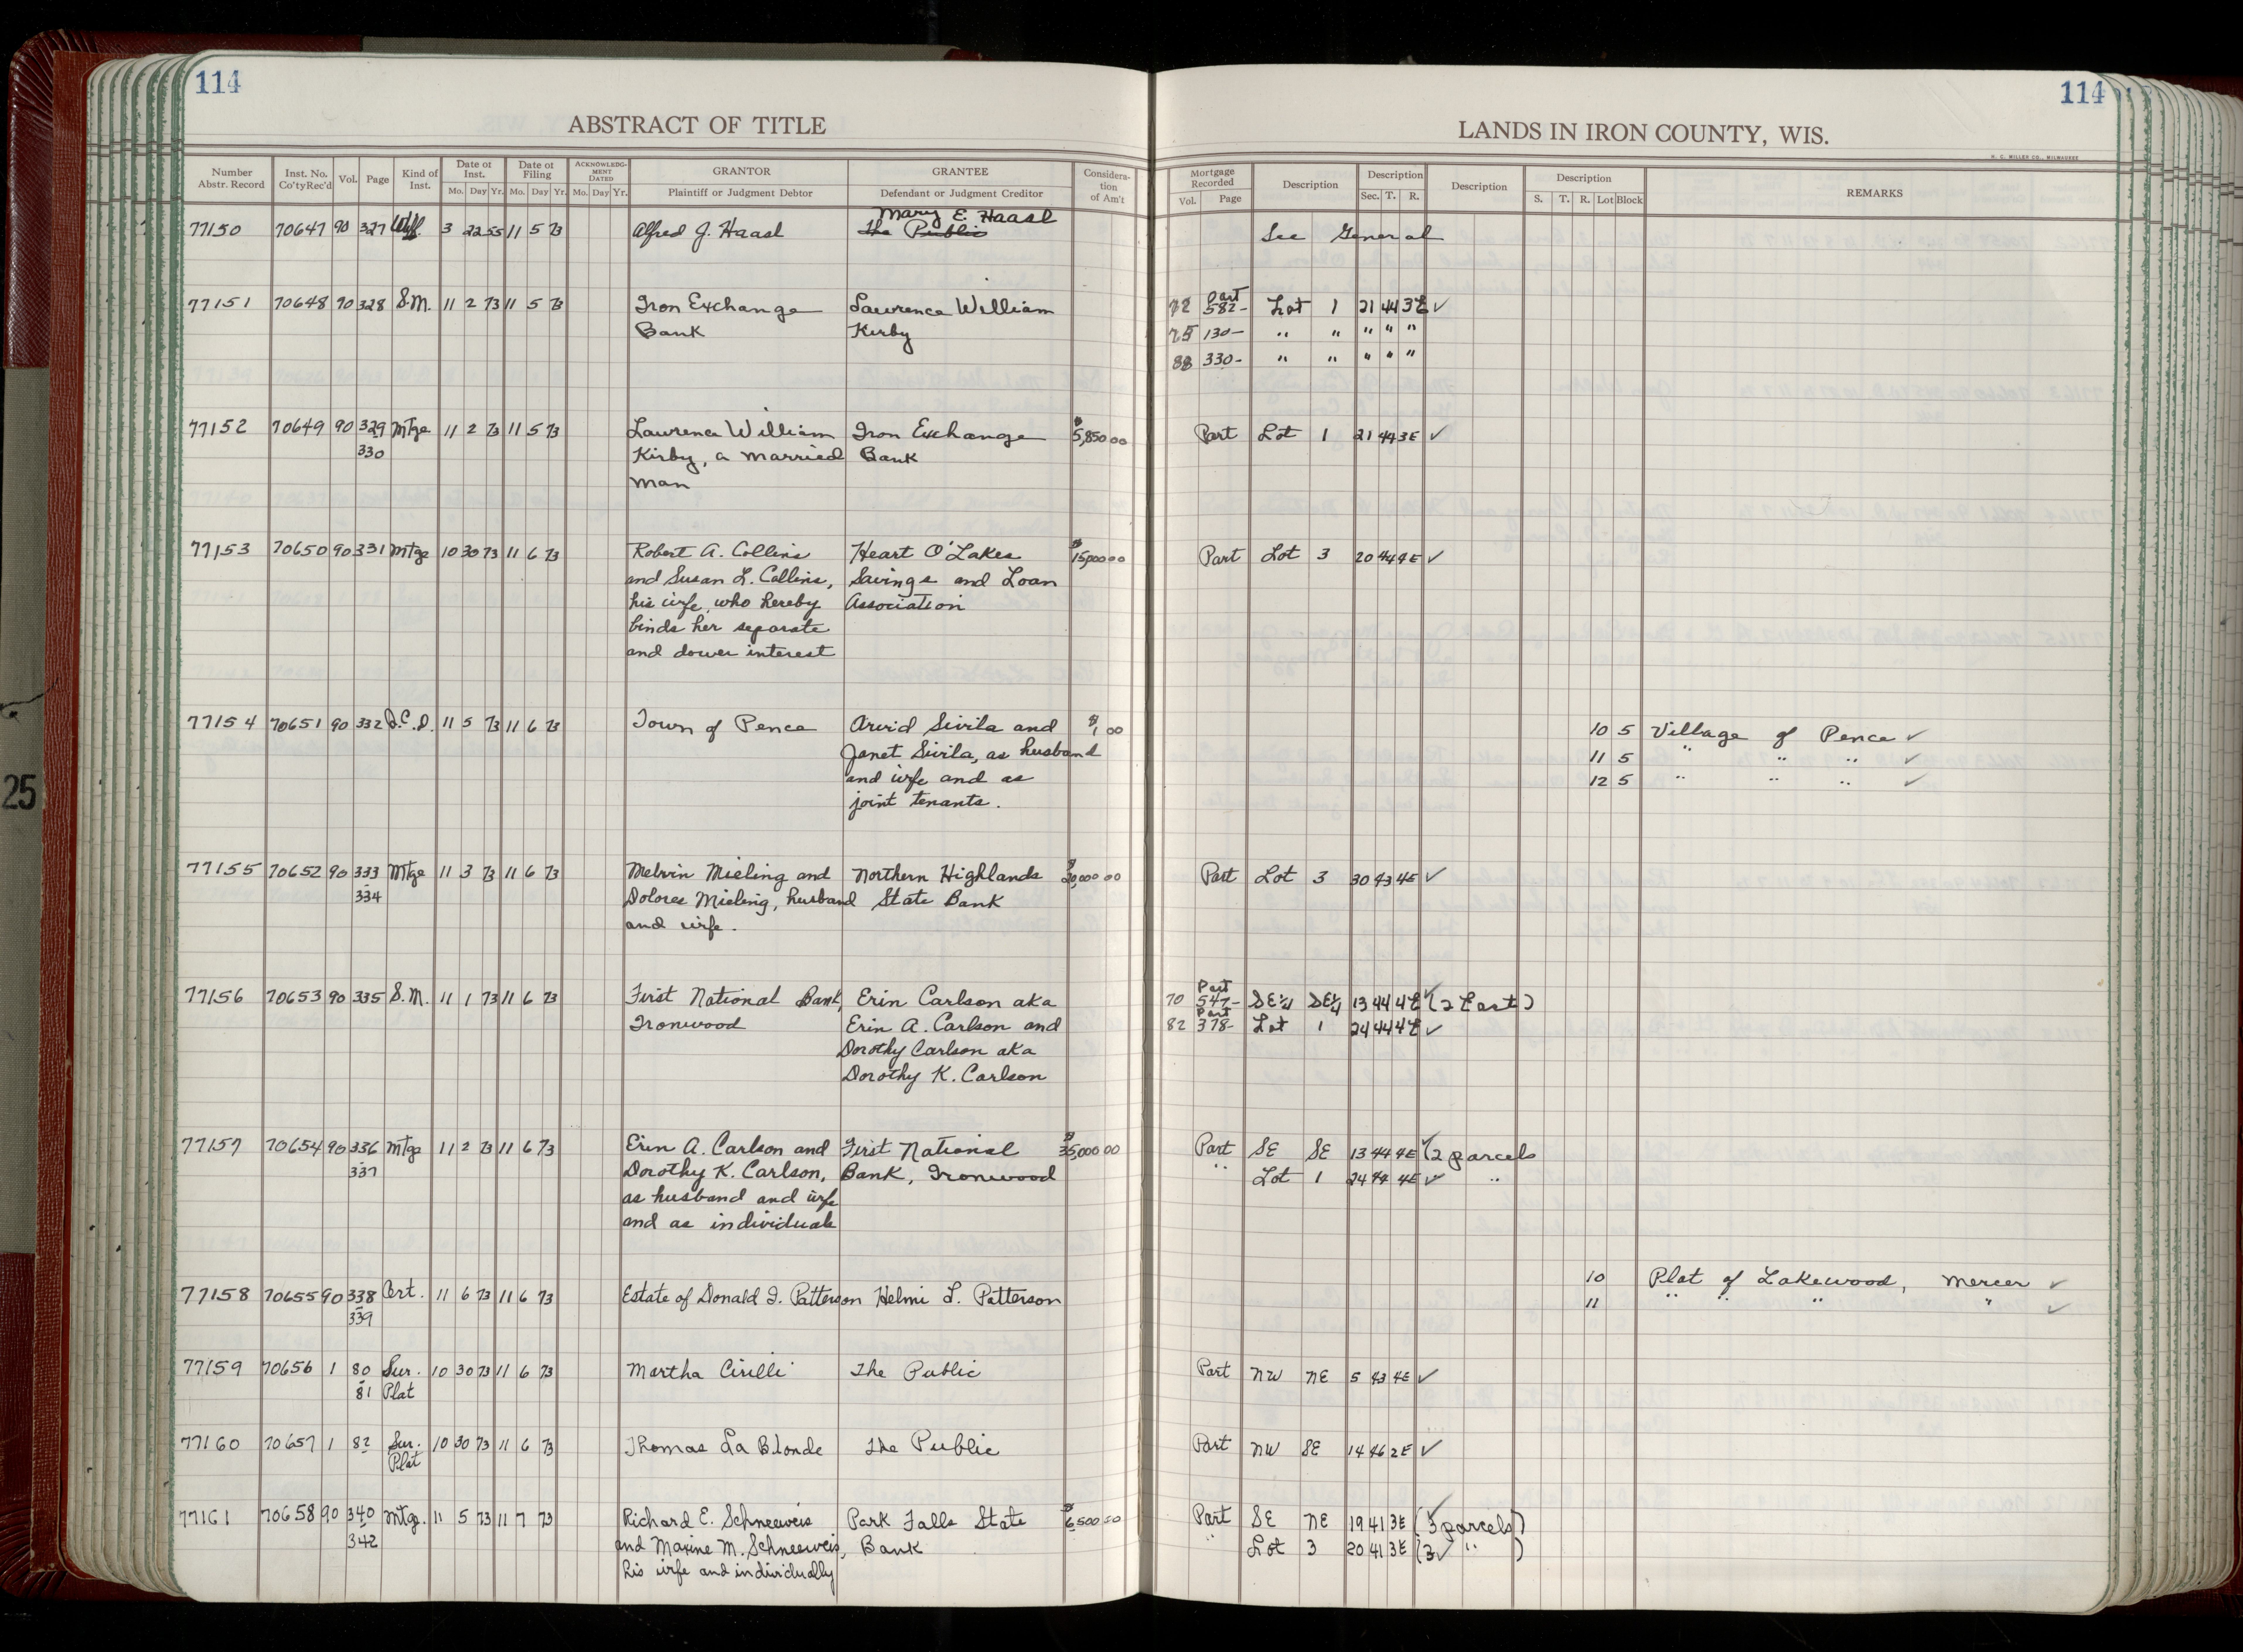 114
114
ABSTRACT OF TITLE
LANDS IN IRON COUNTY, WIS.
H. C. MILLER CO., MILWAUKEE
Number Abstr. Record Inst. No. Co'tyRec'd Vol. Page Kind of Inst. Date of Inst. Mo. Day Yr. Date of Filing Mo. Day Yr. ACKNOWLEDGMENT DATED Mo. Day Yr. GRANTOR Plaintiff or Judgment Debtor GRANTEE Defendant or Judgment Creditor Considera-tion of Am't
Mortgage Recorded Vol. Page Description Description Sec. T. R. Description Description S. T. R. Lot Block REMARKS
Mary E. Haasl
77150 70647 90 327 3 22 55 11 5 73 Alfred J. Haasl The Public See General
77151 70648 90 328 S.M. 11 2 73 11 5 73 Iron Exchange Lawrence William 72 Part 582- Lot 1 21 44 3E ✓
Bank Kirby 75 130- " " " " "
88 330- " " " " "
77152 70649 90 329 Mtge 11 2 73 11 5 73 Lawrence William Iron Exchange $5,850 00 Part Lot 1 21 44 3E ✓
330 Kirby, a married Bank
man
77153 70650 90 331 Mtge 10 30 73 11 6 73 Robert A. Collins Heart O'Lakes $15,000 00 Part Lot 3 20 44 4E ✓
and Susan L. Collins, Savings and Loan
his wife, who hereby Association
binds her separate
and dower interest
77154 70651 90 332 Q.C.D. 11 5 73 11 6 73 Town of Pence Arvid Sivila and $1 00 10 5 Village of Pence ✓
Janet Sivila, as husband 11 5 " " " ✓
and wife and as 12 5 " " " ✓
joint tenants.
77155 70652 90 333 Mtge 11 3 73 11 6 73 Melvin Mieling and Northern Highlands $20,000 00 Part Lot 3 30 43 4E ✓
334 Dolores Mieling, husband State Bank
and wife.
77156 70653 90 335 S.M. 11 1 73 11 6 73 First National Bank, Erin Carlson aka 70 Part 547- SE¼ SE¼ 13 44 4E ✓
Ironwood Erin A. Carlson and 82 Part 378- Lot 1 24 44 4E ✓
Dorothy Carlson aka
Dorothy K. Carlson
77157 70654 90 336 Mtge 11 2 73 11 6 73 Erin A. Carlson and First National $35,000 00 Part SE SE 13 44 4E ✓ (2 parcels
337 Dorothy K. Carlson, Bank, Ironwood " Lot 1 24 44 4E ✓ "
as husband and wife
and as individuals
77158 70655 90 338 Cert. 11 6 73 11 6 73 Estate of Donald I. Patterson Helmi L. Patterson 10 Plat of Lakewood, Mercer ✓
339 11 " " " " ✓
77159 70656 1 80 Sur. 10 30 73 11 6 73 Martha Cirilli The Public Part NW NE 5 43 4E ✓
81 Plat
77160 70657 1 82 Sur. 10 30 73 11 6 73 Thomas La Blonde The Public Part NW SE 14 46 2E ✓
Plat
77161 70658 90 340 Mtge. 11 5 73 11 7 73 Richard E. Schneeweis Park Falls State $6,500 00 Part SE NE 19 41 3E (3 parcels)
342 and Maxine M. Schneeweis, Bank " Lot 3 20 41 3E (3 ✓ " )
his wife and individually
25